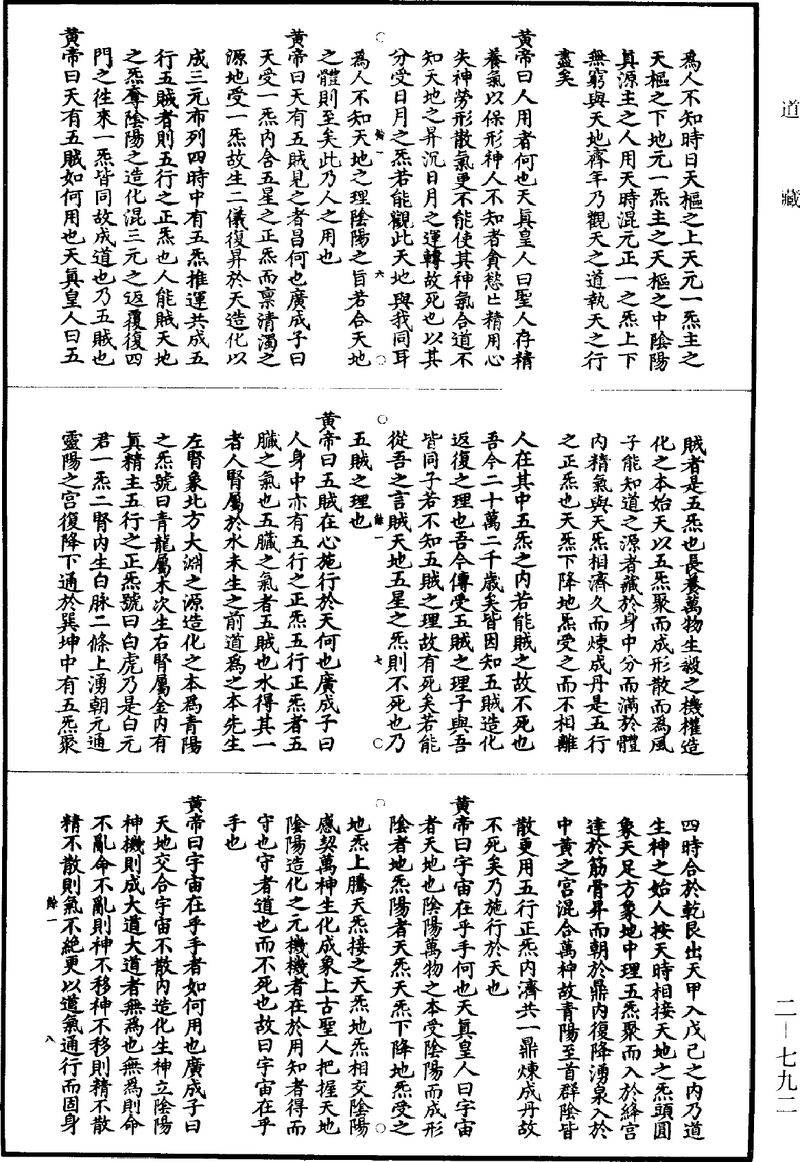 道藏
為人不知時日天樞之上天元一炁主之
天樞之下地元一炁主之天樞之中陰陽
真源主之人用天時混元正一之炁上下
無窮與天地齊年乃觀天之道執天之行
盡矣
黃帝曰人用者何也天真皇人曰聖人存精
養氣以保形神人不知者貪慾亡精用心
失神勞形散氣更不能使其神氣合道不
知天地之昇沉日月之運轉故死也以其
分受日月之炁若能觀此天地與我同耳
為人不知天地之理陰陽之旨若合天地
之體則至矣此乃人之用也
黃帝曰天有五賊見之者昌何也廣成子曰
天受一炁內含五星之正炁而稟清濁之
源地受一炁故生二儀復昇於天造化以
成三元布列四時中有五炁推運共成五
行五賊者則五行之正炁也人能賊天地
之炁奪陰陽之造化混三元之返覆復四
門之往來一炁皆同故成道也乃五賊也
黃帝曰天有五賊如何用也天真皇人曰五
餘一
六
賊者是五炁也長養萬物生殺之機權造
化之本始天以五炁聚而成形散而為風
子能知道之源者藏於身中分而滿於體
內精氣與天炁相濟久而煉成丹是五行
之正炁也天炁下降地炁受之而不相離
人在其中五炁之內若能賊之故不死也
吾今二十萬二千歲矣皆因知五賊造化
返復之理也吾今傳受五賊之理子與吾
皆同子若不知五賊之理故有死矣若能
從吾之言賊天地五星之炁則不死也乃
五賊之理也
黃帝曰五賊在心施行於天何也廣成子曰
人身中亦有五行之正炁五行正炁者五
臟之氣也五臟之氣者五賊也水得其一
者人腎屬於水未生之前道為之本先生
左腎象北方大淵之源造化之本為青陽
之炁號曰青龍屬木次生右腎屬金內有
真精主五行之正炁號曰白虎乃是白元
君一炁二腎內生白脉二條上湧朝元通
靈陽之宮復降下通於巽坤中有五炁聚
餘一
七
四時合於乾艮出天甲入戊己之內乃道
生神之始人按天時相接天地之炁頭圓
象天足方象地中理五炁聚而入於絳宮
達於筋骨昇而朝於鼎內復降湧泉入於
中黃之宮混合萬神故青陽至首群陰皆
散更用五行正炁內濟共一鼎煉成丹故
不死矣乃施行於天也
黃帝曰宇宙在乎手何也天真皇人曰宇宙
者天地也陰陽萬物之本受陰陽而成形
陰者地炁陽者天炁天炁下降地炁受之
地炁上騰天炁接之天炁地炁相交陰陽
感契萬神生化成象上古聖人把握天地
陰陽造化之元機機者在於用知者得而
守也守者道也而不死也故曰宇宙在乎
手也
黃帝曰宇宙在乎手者如何用也廣成子曰
天地交合宇宙不散內造化生神立陰陽
神機則成大道大道者無為也無為則命
不亂命不亂則神不移神不移則精不散
精不散則氣不絕更以道氣通行而固身
餘一
八
二—七九二